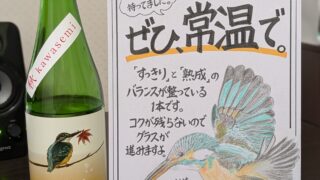 秋 kawasemi
持ってましたぁ。
ぜひ、常温で。
「すっきり」と「熟成」の
バランスが整っている
1本です。
コクが残らないので
グラスが
進みますよ